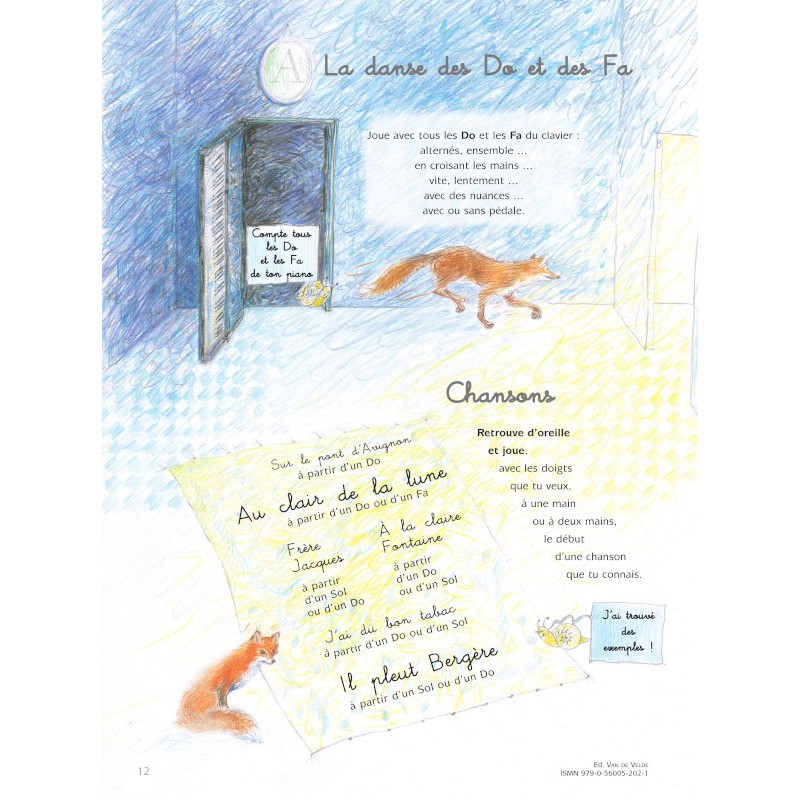 A
La danse des Do et des Fa
Joue avec tous les Do et les Fa du clavier :
alternés, ensemble ...
en croisant les mains ...
vite, lentement ...
avec des nuances ...
avec ou sans pédale.
Compte tous
les Do
et les Fa
de ton piano
Chansons
Retrouve d'oreille
et joue.
avec les doigts
que tu veux,
à une main
ou à deux mains,
le début
d'une chanson
que tu connais.
Sur le pont d'Avignon
à partir d'un Do
Au clair de la lune
à partir d'un Do ou d'un Fa
Frère
Jacques
à partir
d'un Sol
ou d'un Do
À la claire
Fontaine
à partir
d'un Do
ou d'un Sol
J'ai du bon tabac
à partir d'un Do ou d'un Sol
Il pleut Bergère
à partir d'un Sol ou d'un Do
J'ai trouvé
des
exemples !
12
Ed. Van de Velde
ISMN 979-0-56005-202-1